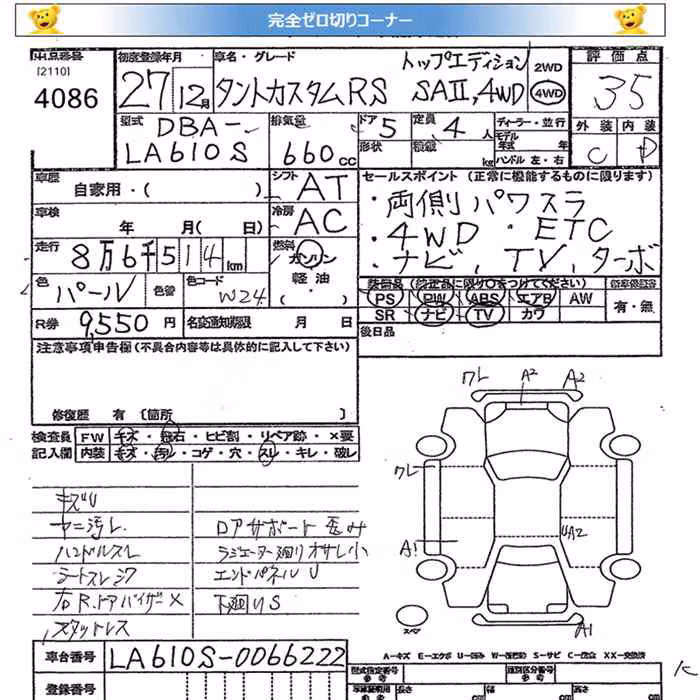 完全ゼロ切りコーナー
出品番号 初度登録年月 車名・グレード 評価点
[2110] トップエディション 2WD
4086 27 12月 タントカスタムRS SAII,4WD 4WD 35
型式 排気量 ドア 定員 ディーラー・並行 外装 内装
DBA- 5 4人 モデル年式 年
LA610S 660cc 形状 積載 kg ハンドル 左・右 C D
車歴 シフト セールスポイント (正常に機能するものに限ります)
自家用・( ) AT ・両側パワスラ
車検 冷房 ・4WD ・ETC
年 月( 日) AC ・ナビ, TV, ターボ
走行 燃料
8万6千514km ガソリン
軽油
色 色替 色コード 装備品 (装着品に限り○をつけてください)
パール W24 PS PW ABS エアB AW 有・無
R券 9,550円 名変通知期限 月 日 SR ナビ TV カワ
注意事項申告欄(不具合内容等は具体的に記入して下さい) 後日品
修復歴 有 [箇所 ]
検査員 FW キズ・飛石・ヒビ割・リペア跡・×要
記入欄 内装 キズ・汚レ・コゲ・穴・スレ・キレ・破レ
キズU
ヤニ汚レ ロアサポート歪み
ハンドルスレ ラジエーター廻りオサレ小
シートスレシワ エンドパネルU
右R.ドアバイザー× 下廻りS
スタットレス
ワレ A2 A2
ワレ
A1 UA2
スペア A1
A-キズ E-エクボ U-凹み W-補修跡 S-サビ C-腐食 XX-交換済
車台番号 LA610S-0066222
型式指定番号 類別区分番号
登録番号 参考 長さ cm 幅 cm 高さ cm